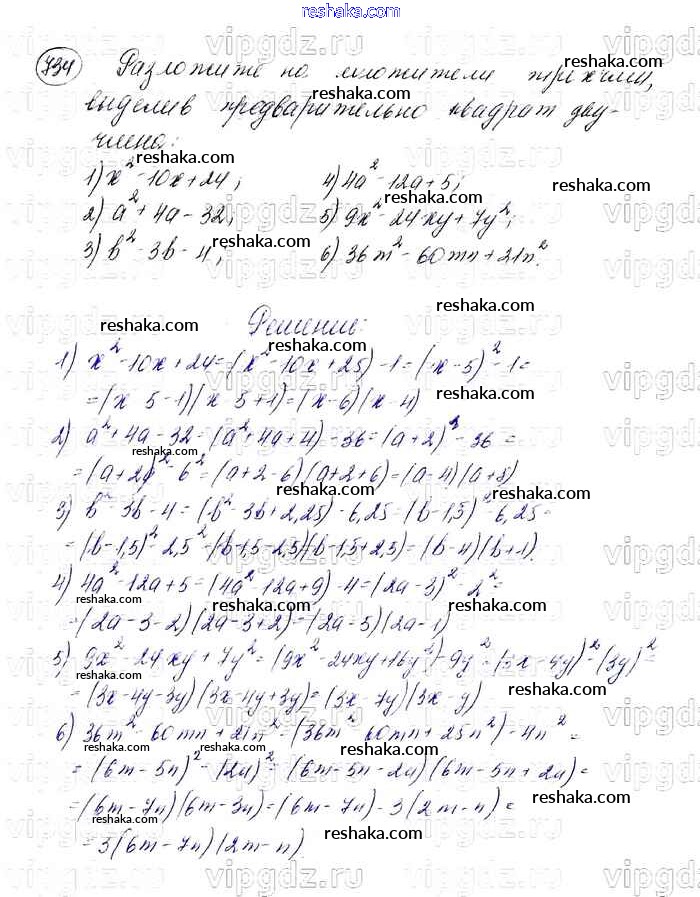 reshaka.com
734 Разложите на множители трехчлен,
выделив предварительно квадрат дву-
члена:
1) x² - 10x + 24; 4) 4a² - 12a + 5;
2) a² + 4a - 32; 5) 9x² - 24xy + 7y²;
3) b² - 3b - 4; 6) 36m² - 60mn + 21n².
Решение:
1) x² - 10x + 24 = (x² - 10x + 25) - 1 = (x - 5)² - 1 =
= (x 5 - 1)(x 5 + 1) = (x - 6)(x 4)
2) a² + 4a - 32 = (a² + 4a + 4) - 36 = (a + 2)² - 36 =
= (a + 2)² - 6² = (a + 2 - 6)(a + 2 + 6) = (a - 4)(a + 8)
3) b² - 3b - 4 = (b² - 3b + 2,25) - 6,25 = (b - 1,5)² - 6,25 =
= (b - 1,5)² 2,5² = (b - 1,5 - 2,5)(b - 1,5 + 2,5) = (b - 4)(b + 1).
4) 4a² - 12a + 5 = (4a² - 12a + 9) - 4 = (2a - 3)² - 2² =
= (2a - 3 - 2)(2a - 3 + 2) = (2a - 5)(2a - 1)
5) 9x² - 24xy + 7y² = (9x² - 24xy + 16y²) - 9y² = (3x - 4y)² - (3y)² =
= (3x - 4y - 3y)(3x - 4y + 3y) = (3x - 7y)(3x - y)
6) 36m² - 60mn + 21n² = (36m² 60mn + 25n²) - 4n² =
= (6m - 5n)² - (2n)² = (6m - 5n - 2n)(6m - 5n + 2n) =
= (6m - 7n)(6m - 3n) = (6m - 7n) · 3(2m - n) =
= 3(6m - 7n)(2m - n)